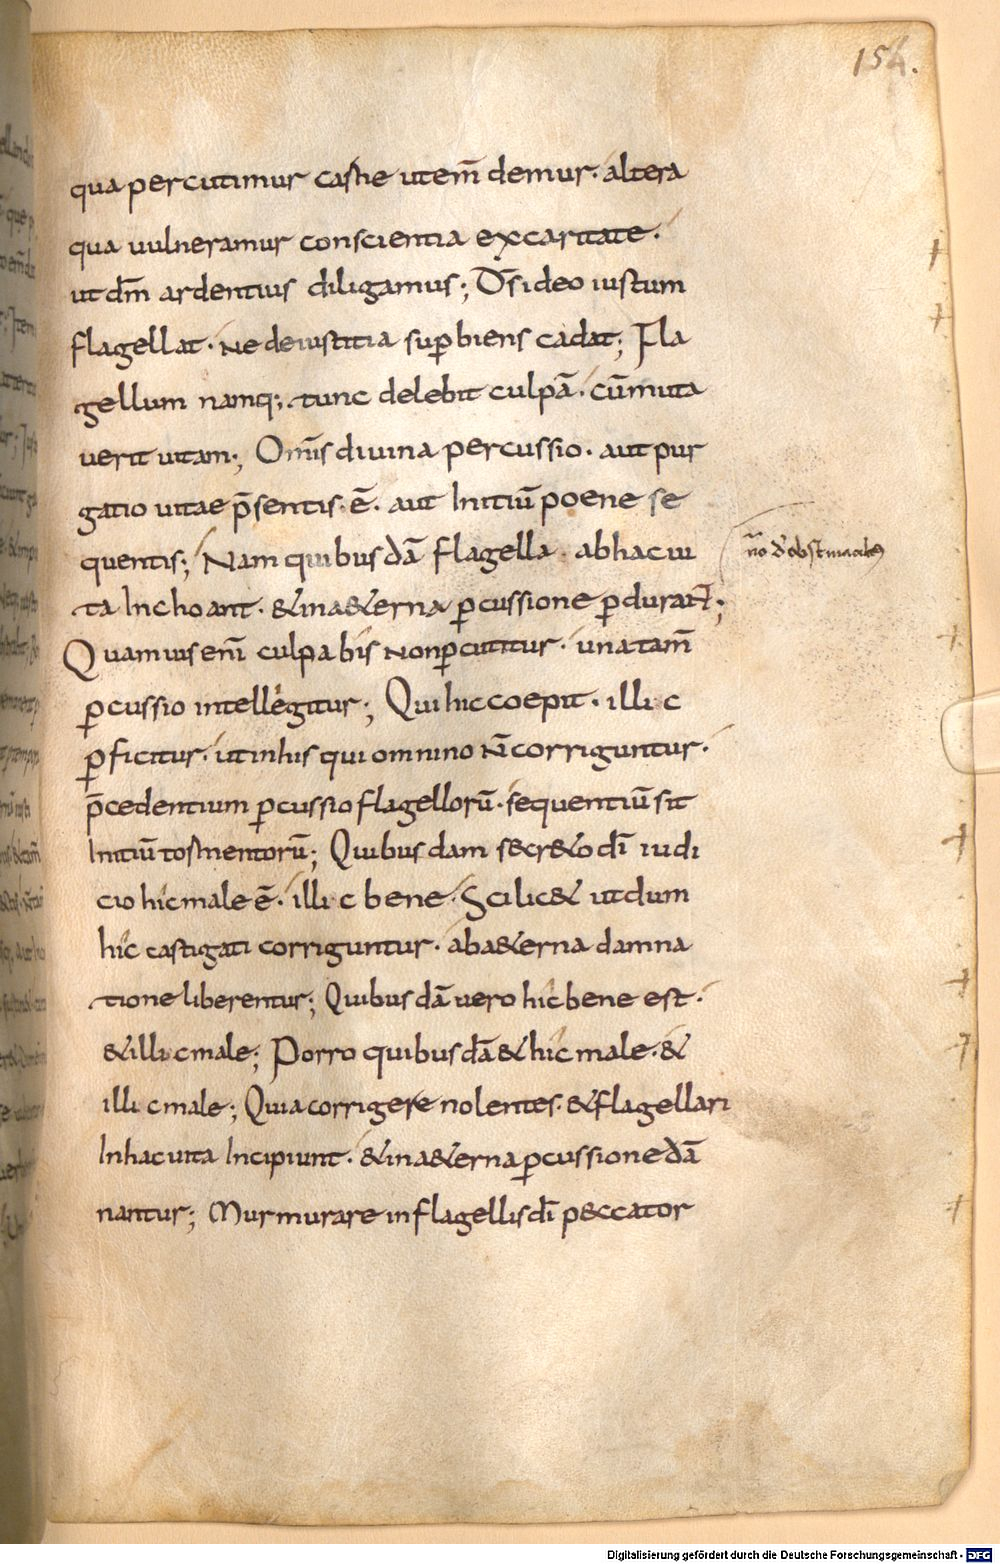 154.
qua percutimur carne ut em̄demur· altera
qua vulneramur conscientia ex caritate·
ut dm̄ ardentius diligamus; D̄s ideo iustum
flagellat· ne de iustitia sup̲biens cadat; Fla
gellum namq; tunc delebit culpā· cū muta
verit vitam; Om̄s divina percussio· aut pur
gatio vitae p̄sentis ē· aut Initiū poene se
quentis; Nam quibusdā flagella ab hac vi
ta Inchoant· & in a&erna p̲cussione p̲durant;
n̄o d' obstinatis
Quamvis enī culpabis non p̲cutitur· una tam̄
p̲cussio intellegitur; Qui hic coepit· illic
p̲ficitur· ut in his qui omnino n̄ corriguntur·
p̄cedentium p̲cussio flagellorū· sequentiū sit
Initiū tormentorū; Quibusdam secr&o dī iudi
cio hic male ē· illic bene· Scilic& ut dum
hic castigati corriguntur· ab a&erna damna
tione liberentur; Quibusdā vero hic bene est·
& illic male; Porro quibusdā & hic male· &
illic male; Quia corrigere nolentes· & flagellari
In hac vita Incipiunt· & in a&erna p̲cussione dā
nantur; Murmurare in flagellis dī peccator
Digitalisierung gefördert durch die Deutsche Forschungsgemeinschaft - DFG